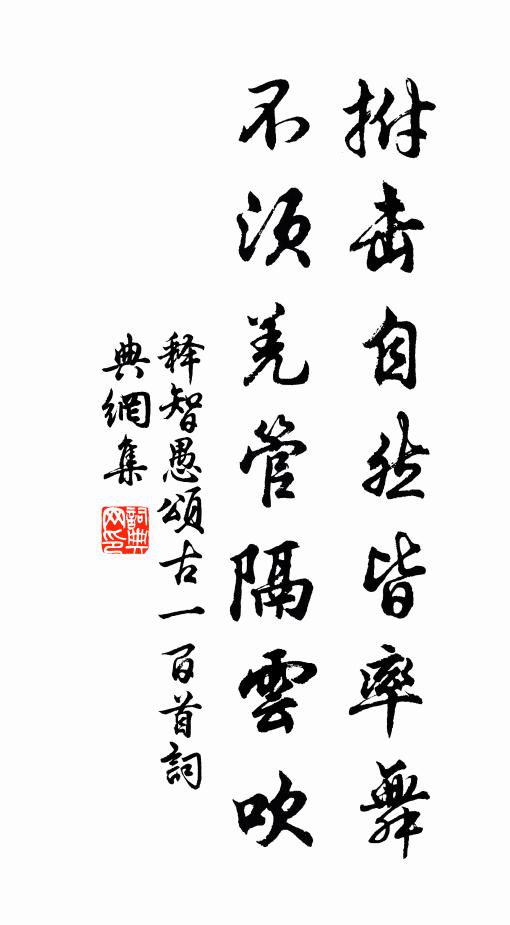 拊击自然皆率舞
不须羌管隔雲吹
释智愚頌古一百首詞
典網集
詞典网印